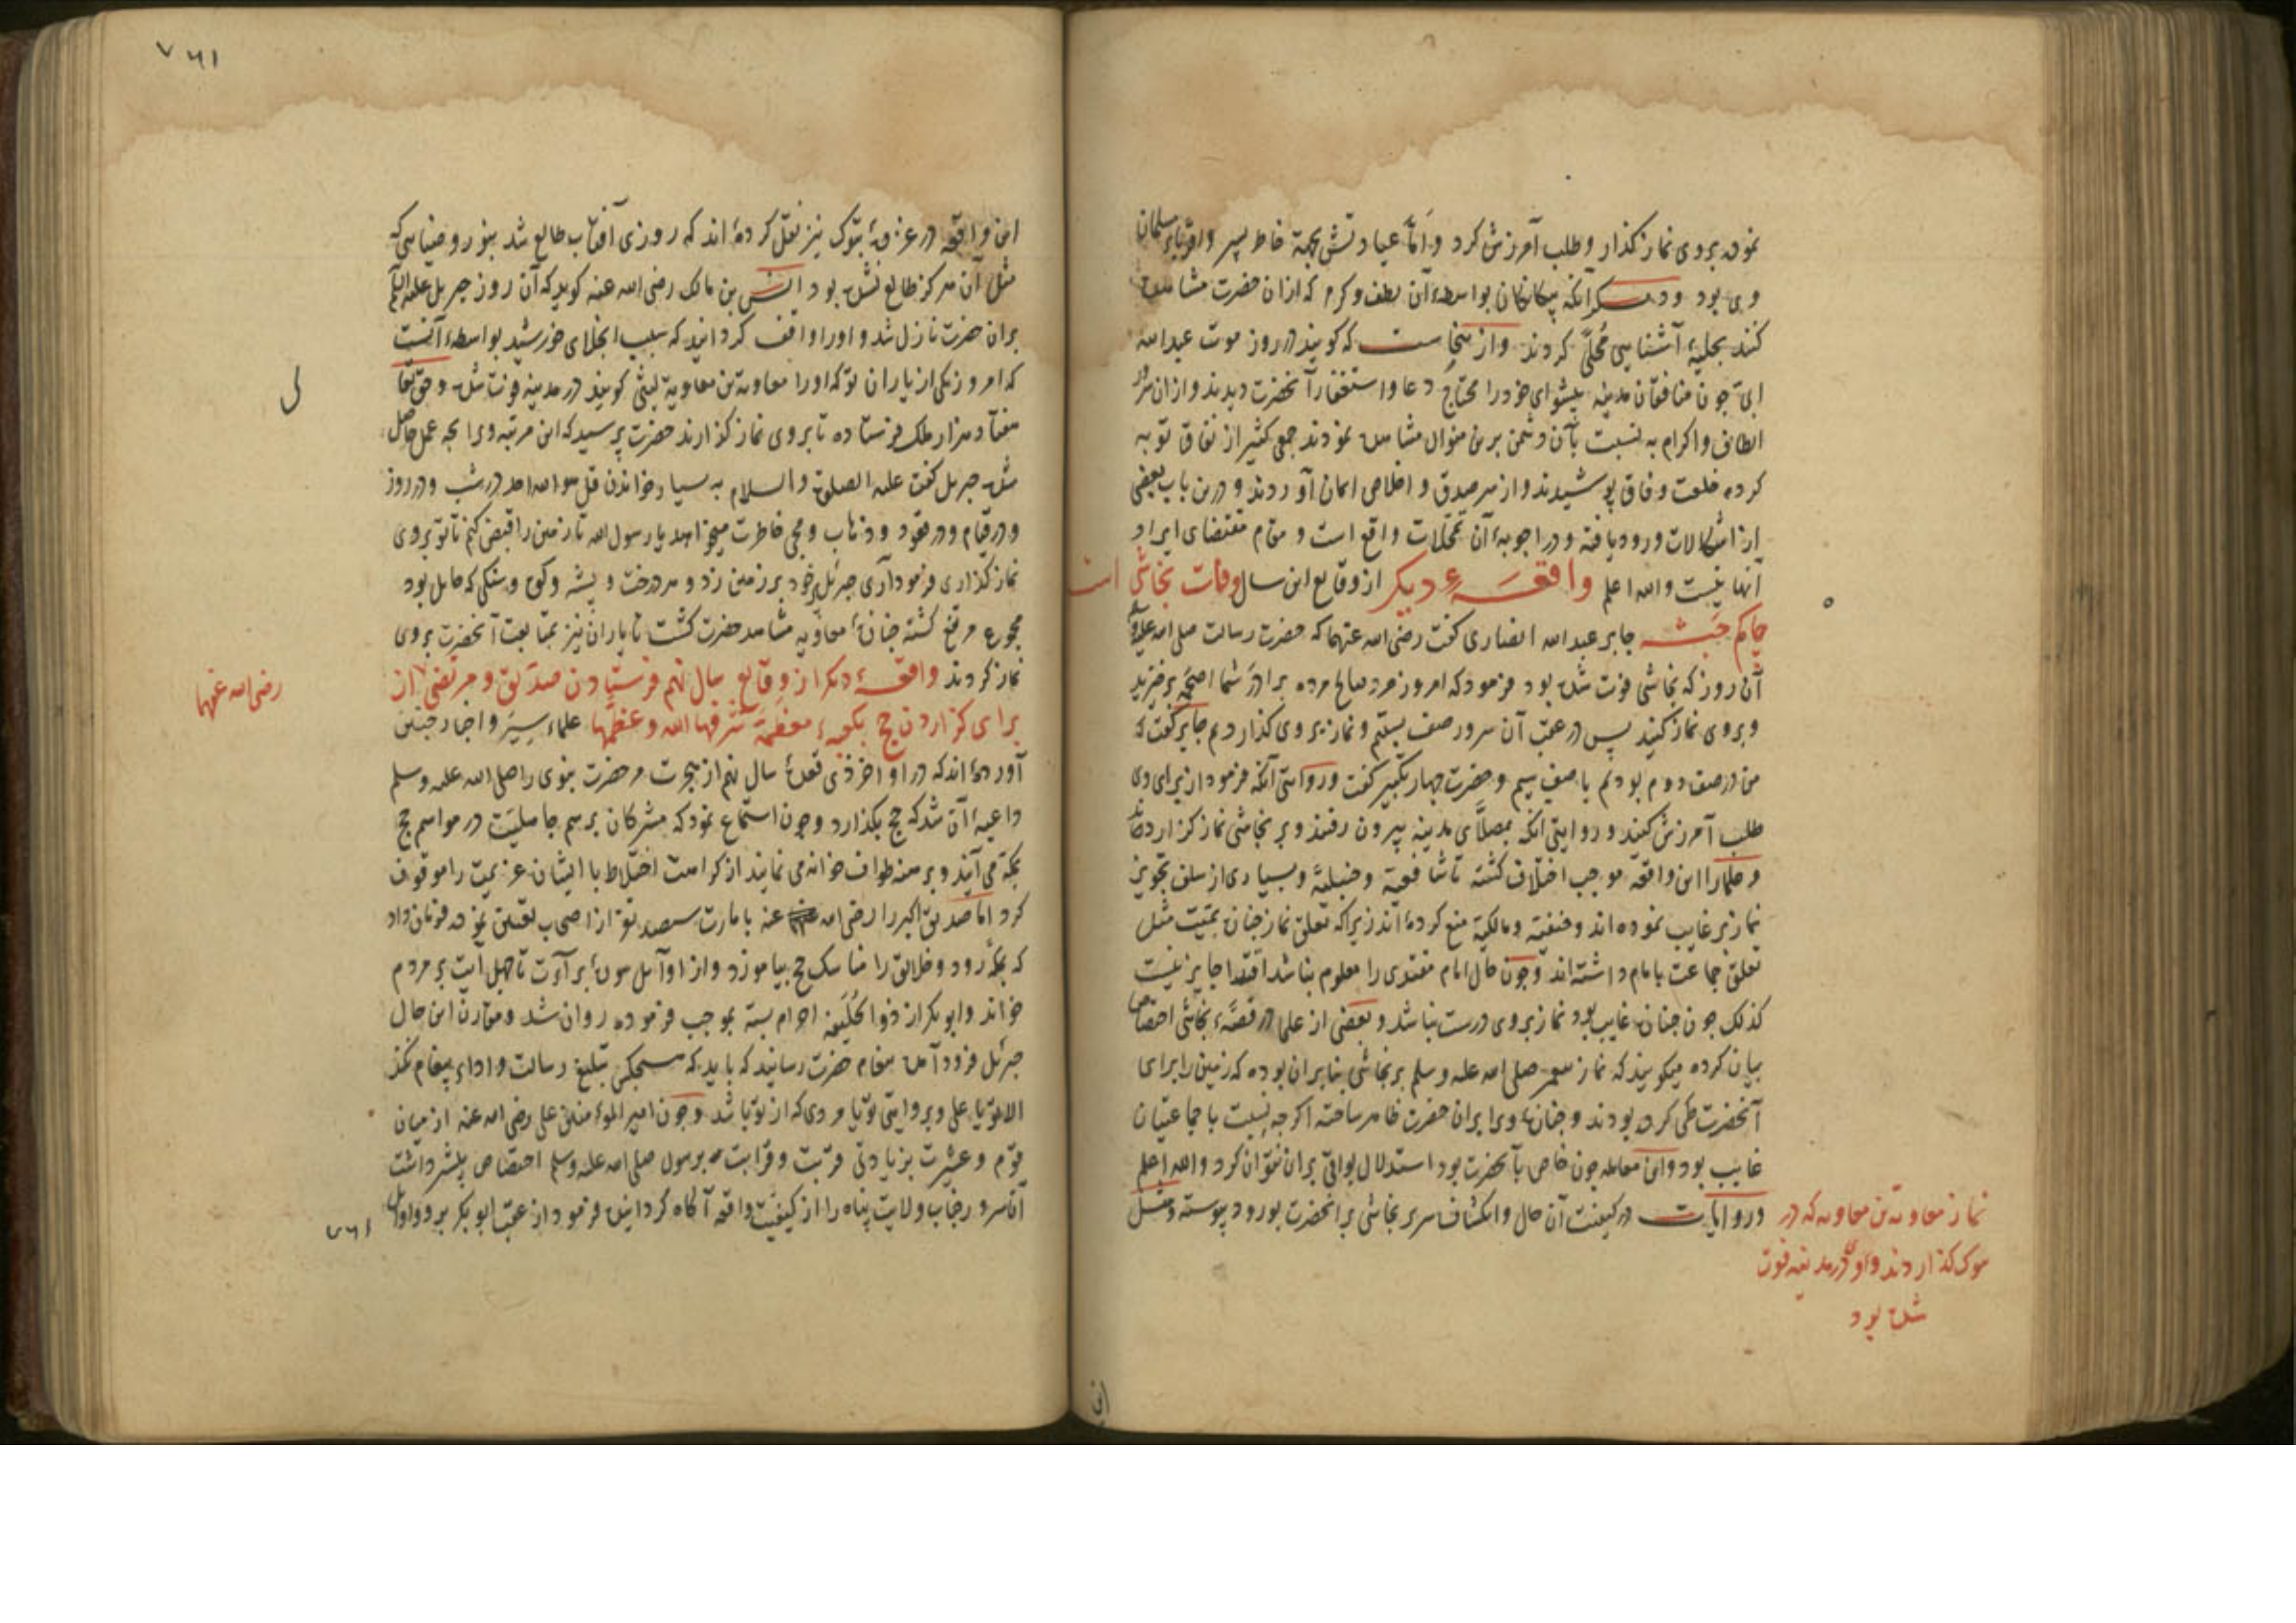 نموده بروی نماز گذارد و طلب آمرزش کرد و امّا عیادتش بجهة خاطر پسر و اقربای مسلمان
وی بود و دیگر آنکه بیگانگان بواسطهٔ آن لطف و کرم که ازان حضرت مشاهده
کنند بحلیهٔ آشنایی مُحلّی گردند و ازینجاست که گویند در روز موت عبدالله
ابیّ چون منافقان مدینه پیشوای خود را محتاج دعا و استغفار آنحضرت دیدند و ازان سرور
الطاف و اکرام به نسبت بآن دشمن برین منوال مشاهده نمودند جمع کثیر از نفاق توبه
کرده خلعت وفاق پوشیدند و از سر صدق و اخلاص ایمان آوردند و درین باب بعضی
از اشکالات ورود یافته و در اجوبهٔ آن تمحّلات واقع است و مقام مقتضای ایراد
آنها نیست والله اعلم واقعهٔ دیگر از وقایع این سال وفات نجاشی است
حاکم حبشه جابر عبدالله انصاری گفت رضی الله عنهما که حضرت رسالت صلی الله علیه و سلم
آن روز که نجاشی فوت شده بود فرمود که امروز مرد صالح مرده برادر شما اصحمه برخیزید
و بروی نماز کنید پس در عقب آن سرور صف بستیم و نماز بروی گذاردیم جابر گفت که
من در صف دوم بودم یا صف سیم و حضرت چهار تکبیر گفت و روایتی آنکه فرمود از برای وی
طلب آمرزش کنید و روایتی آنکه بمصلّای مدینه بیرون رفتند و بر نجاشی نماز گزاردند
و علما را این واقعه موجب اختلاف گشته تا شافعیه و حنبلیّه و بسیاری از سلف تجویز
نماز بر غایب نموده اند و حنفیّه و مالکیّه منع کرده اند زیراکه تعلق نماز جنازه بمیّت مثل
تعلق جماعت بامام داشته اند و چون حال امام مقتدی را معلوم نباشد اقتدا جایز نیست
کذلک چون جنازه غایب بود نماز بروی درست نباشد و بعضی از علما در قصّهٔ نجاشی اختصاص
بیان کرده میگویند که نماز پیغمبر صلی الله علیه و سلم بر نجاشی بنابران بوده که زمین را برای
آنحضرت طی کرده بودند و جنازهٔ ویرا بران حضرت ظاهر ساخته اگرچه نسبت با جماعتیان
غایب بود و این معامله چون خاص بآنحضرت بود استدلال بواقی بران نتوان کرد والله اعلم
و روایات در کیفیت آن حال و انکشاف سریر نجاشی بر آنحضرت بورود پیوسته و مثل
نماز معاویة بن معاویه که در
تبوک گذاردند و او در مدینه فوت
شده بود
این
۷۶۱
این واقعه در غزوهٔ تبوک نیز نقل کرده اند که روزی آفتاب طالع شد بنور و ضیایی که
مثل آن هرگز طالع نشده بود انس بن مالک رضی الله عنه گوید که آن روز جبریل علیه السلم
بران حضرت نازل شد و او را واقف گردانید که سبب انجلای خورشید بواسطهٔ آنست
که امروز یکی از یاران تو که او را معاویة بن معاویه لیثی گویند در مدینه فوت شده و حق تعالی
هفتاد هزار ملک فرستاده تا بروی نماز گزارند حضرت پرسید که این مرتبه ویرا بچه عمل حاصل
شده جبریل گفت علیه الصلوة و السلام به بسیار خواندن قل هو الله احد در شب و در روز
و در قیام و در قعود و ذهاب و مجی خاطرت میخواهد یا رسول الله تا زمین را قبض کنم تا تو بروی
نماز گذاری فرمود آری جبرئیل پر خود بر زمین زد و هر درخت و پشه و کوه و سنگی که حایل بود
مجموع مرتفع گشته جنازهٔ معاویه مشاهد حضرت گشت تا یاران نیز بمتابعت آنحضرت بروی
نماز کردند واقعهٔ دیگر از وقایع سال نهم فرستادن صدیق و مرتضی از
رضی الله عنهما
برای گزاردن حج بکعبهٔ معظمه شرفها الله و عظمها علماء سیر و اخبار چنین
آورده اند که در اواخر ذی قعدهٔ سال نهم از هجرت مر حضرت نبوی را صلی الله علیه وسلم
داعیهٔ آن شد که حج بگذارد و چون استماع نمود که مشرکان برسم جاهلیّت در مواسم حج
بمکه می آیند و برهنه طواف خانه می نمایند از کراهت اختلاط با ایشان عزیمت را موقوف
کرد امّا صدیق اکبر را رضی الله عنه بامارت سیصد نفر از اصحاب تعیین نموده فرمان داد
که بمکّه رود و خلایق را مناسک حج بیاموزد و از اوایل سورهٔ برآءت تا چهل آیت بر مردم
خواند و ابوبکر از ذو الحلیفه احرام بسته بموجب فرموده روان شد و مقارن این حال
جبرئیل فرود آمده پیغام حضرت رسانید که باید که هیچکس تبلیغ رسالت و اداء پیغام نکند
الا تو یا علی و بروایتی تو یا مردی که از تو باشد و چون امیر المؤمنین علی رضی الله عنه از میان
قوم و عشیرت بزیادتی قربت و قرابت برسول صلی الله علیه وسلم اختصاص بیشتر داشت
آن سرور جناب ولایت پناه را از کیفیت واقعه آگاه گردانیده فرمود از عقب ابوبکر برو و اوایل
۷۶۱